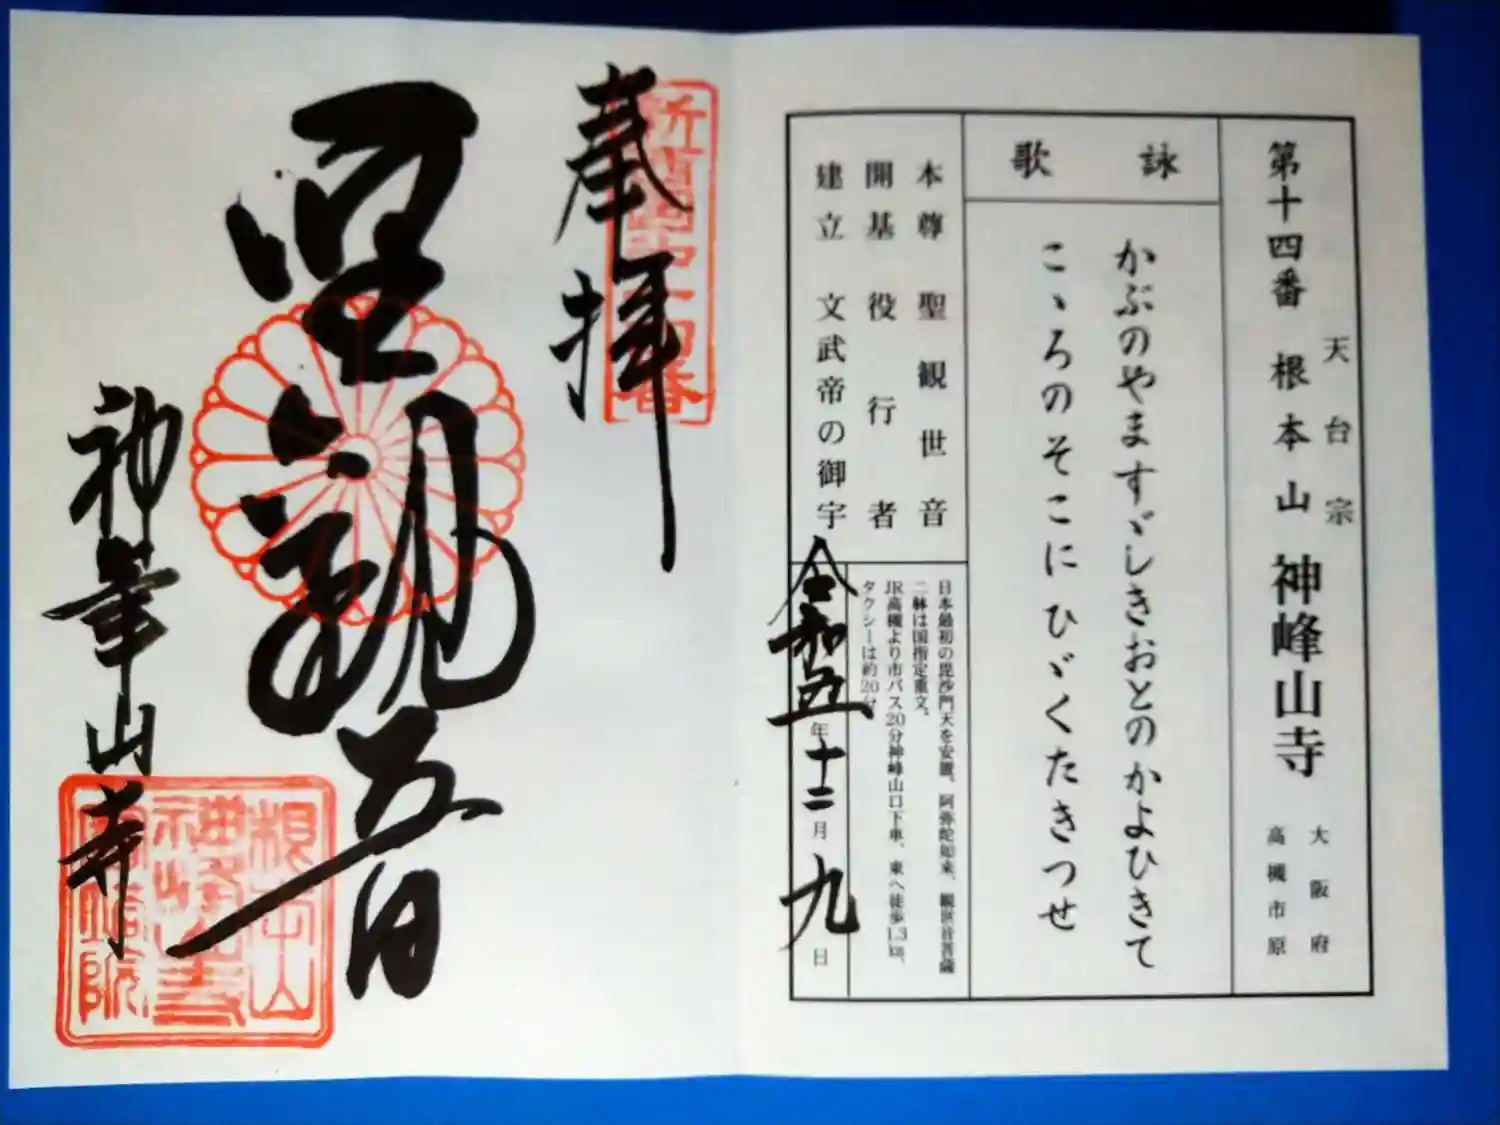 天台宗
第十四番 根本山 神峰山寺
大阪府
高槻市原
詠歌
かぶのやますゞしきおとのかよひきて
こゝろのそこにひゞくたきつせ
本尊 聖観世音
開基 役行者
建立 文武帝の御宇
日本最初の毘沙門天を安置。阿弥陀如来、観世音菩薩
二躰は国指定重文。
JR高槻より市バス20分神峰山口下車、東へ徒歩1.3㎞、
タクシーは約20分
令和五年十二月九日
奉拝
聖観音
神峯山寺
新西国第十四番
根本山
神峰山寺
宝塔院